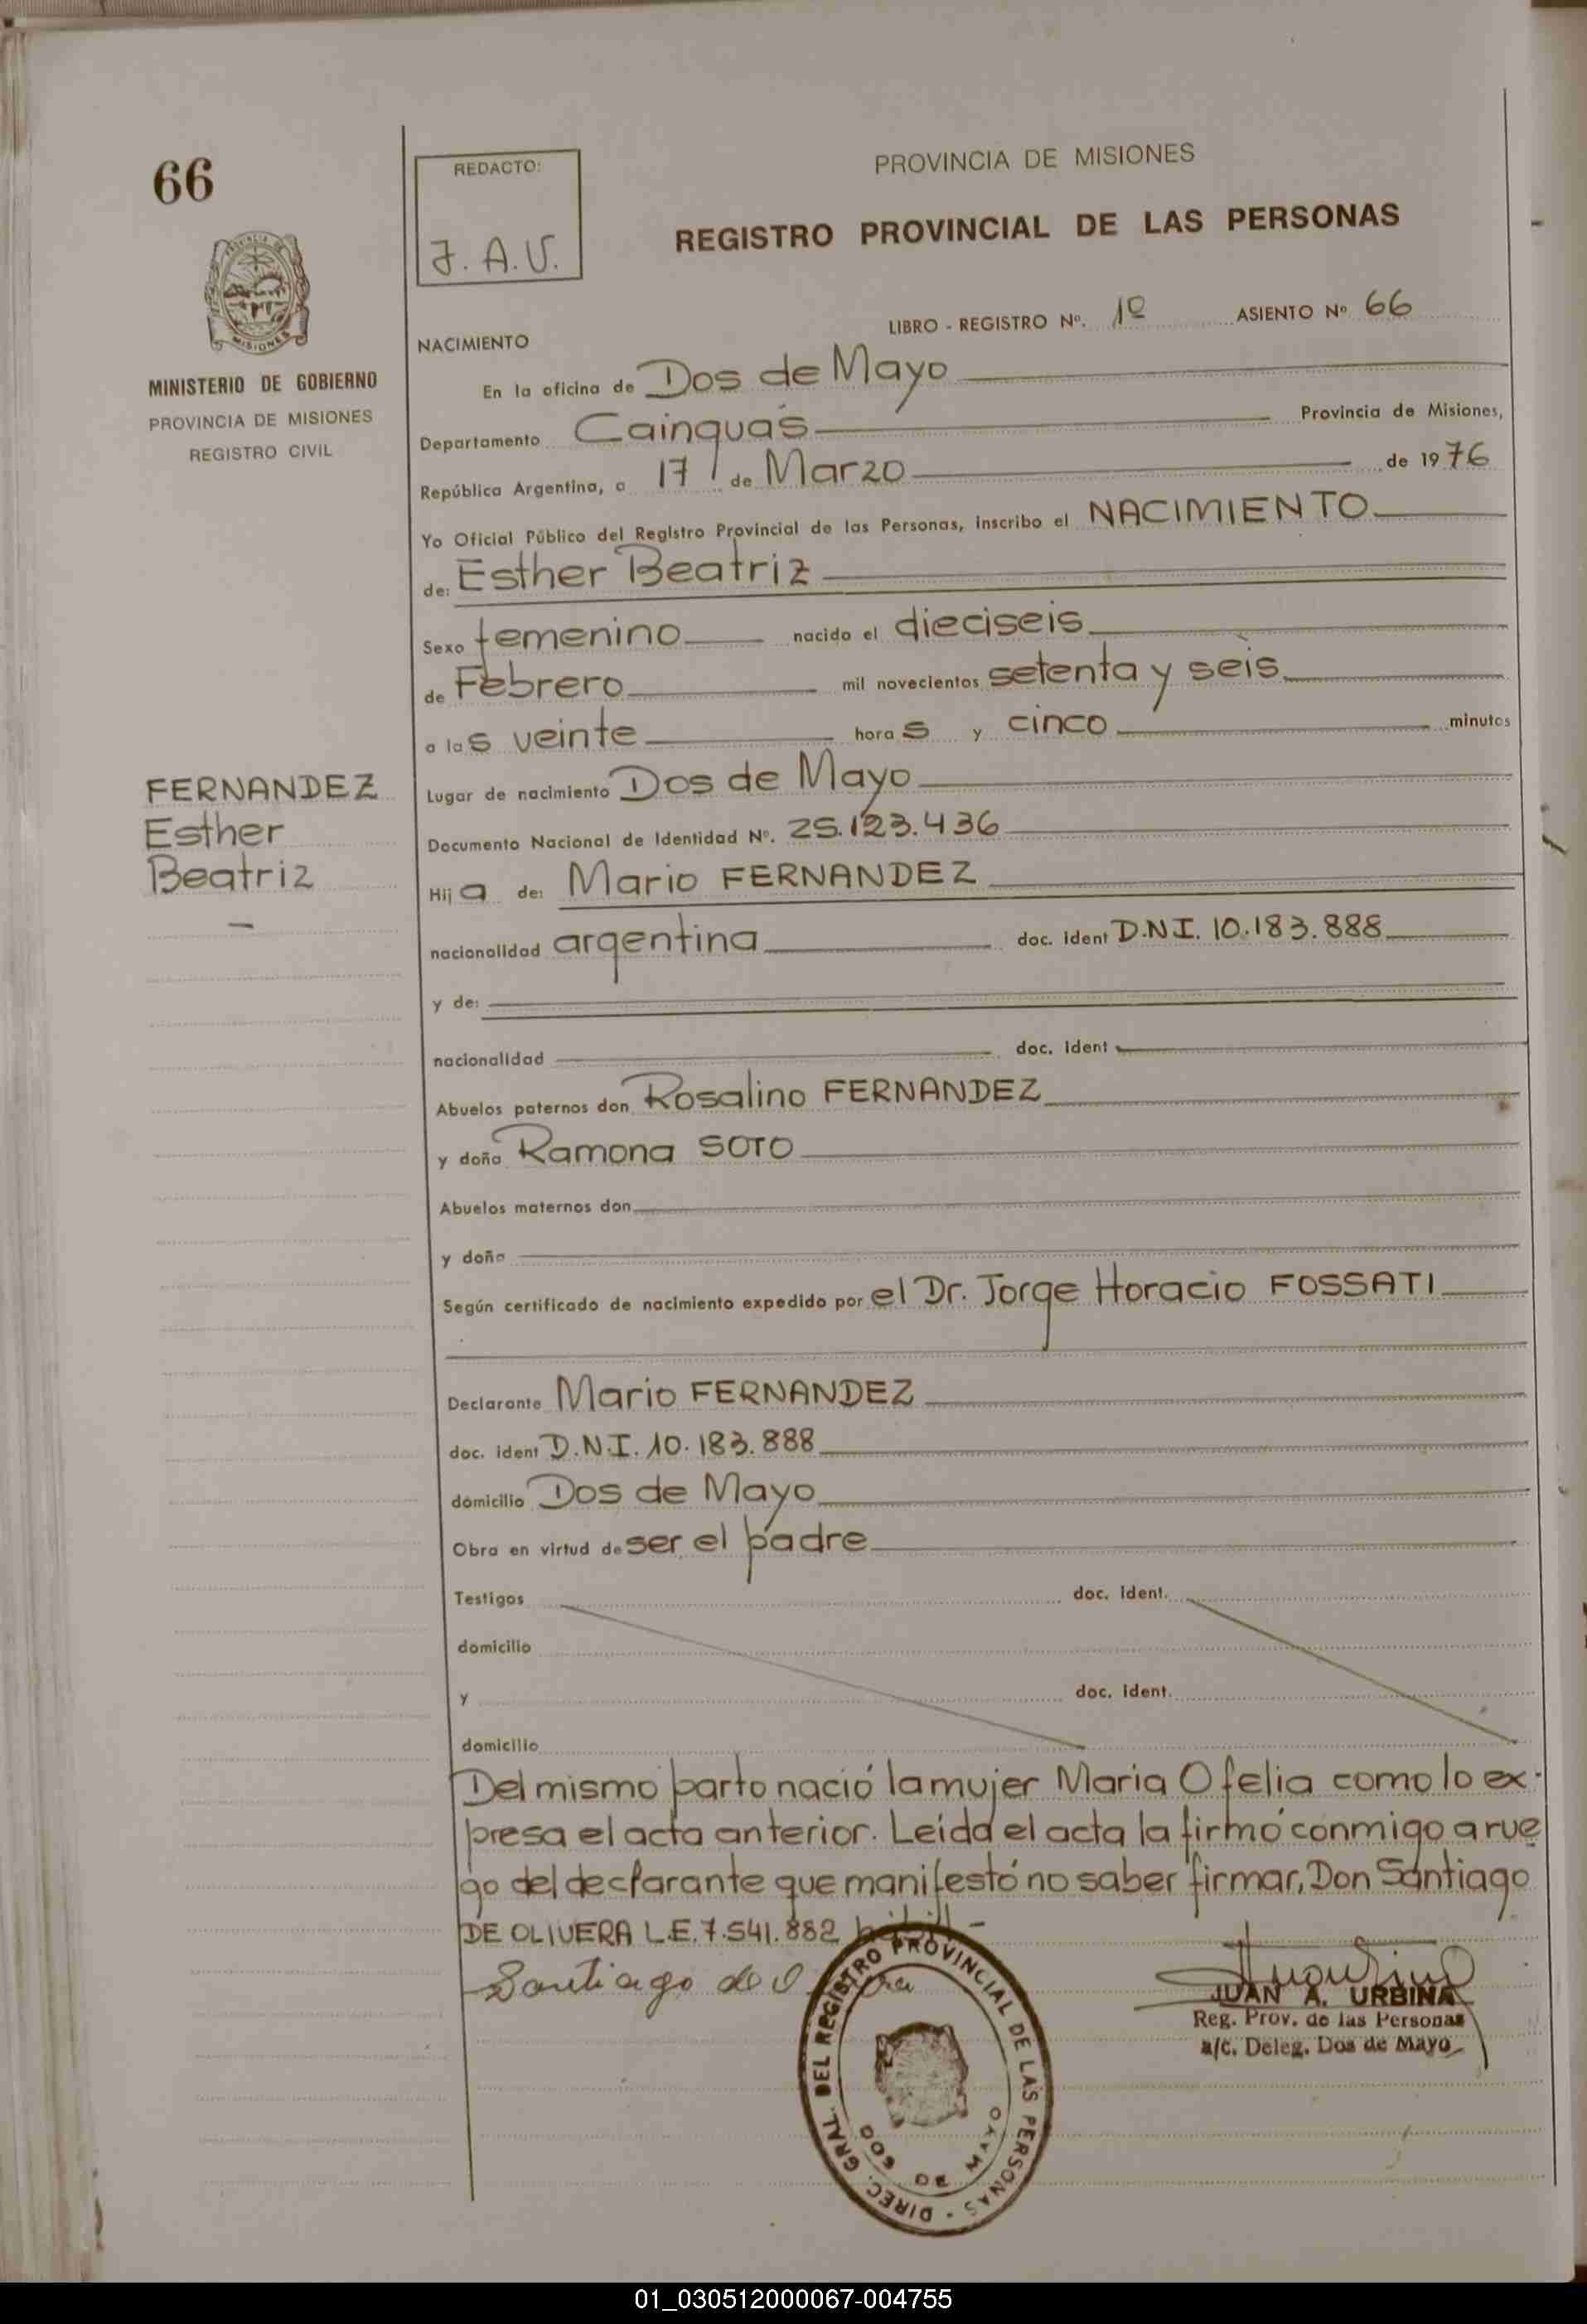 66
REDACTO:
J. A. U.
PROVINCIA DE MISIONES
REGISTRO PROVINCIAL DE LAS PERSONAS
MISIONES
MINISTERIO DE GOBIERNO
PROVINCIA DE MISIONES
REGISTRO CIVIL
LIBRO - REGISTRO Nº. 1º ASIENTO Nº 66
NACIMIENTO
En la oficina de Dos de Mayo
Departamento Cainguás Provincia de Misiones,
República Argentina, a 17 de Marzo de 1976
Yo Oficial Público del Registro Provincial de las Personas, inscribo el NACIMIENTO
de: Esther Beatriz
Sexo femenino nacido el dieciseis
de Febrero mil novecientos setenta y seis
a las veinte horas y cinco minutos
FERNANDEZ
Esther
Beatriz
Lugar de nacimiento Dos de Mayo
Documento Nacional de Identidad Nº. 25.123.436
Hija de: Mario FERNANDEZ
nacionalidad argentina doc. ident D.N.I. 10.183.888
y de:
nacionalidad doc. ident
Abuelos paternos don Rosalino FERNANDEZ
y doña Ramona SOTO
Abuelos maternos don
y doña
Según certificado de nacimiento expedido por el Dr. Jorge Horacio FOSSATI
Declarante Mario FERNANDEZ
doc. ident D.N.I. 10.183.888
domicilio Dos de Mayo
Obra en virtud de ser el padre
Testigos doc. ident.
domicilio
y doc. ident.
domicilio
Del mismo parto nació la mujer Maria Ofelia como lo ex-
presa el acta anterior. Leída el acta la firmó conmigo a rue
go del declarante que manifestó no saber firmar, Don Santiago
DE OLIVERA L.E. 7.541.882
Santiago de
JUAN A. URBINA
Reg. Prov. de las Personas
a/c. Deleg. Dos de Mayo
DIREC. GRAL. DEL REGISTRO PROVINCIAL DE LAS PERSONAS -
DOS DE MAYO
01_030512000067-004755